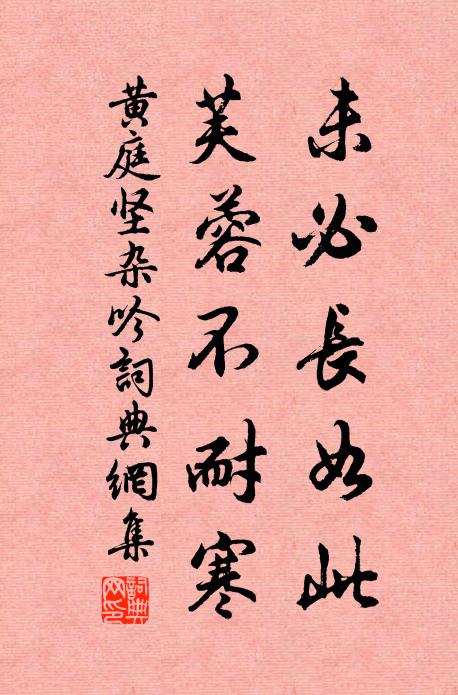 未必長如此
芙蓉不耐寒
黄庭坚杂吟詞典網集
詞典網印